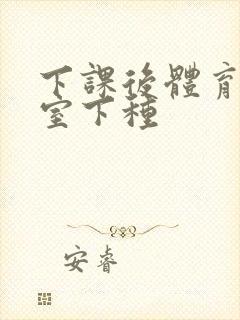 下課後體育
室下種
安睿